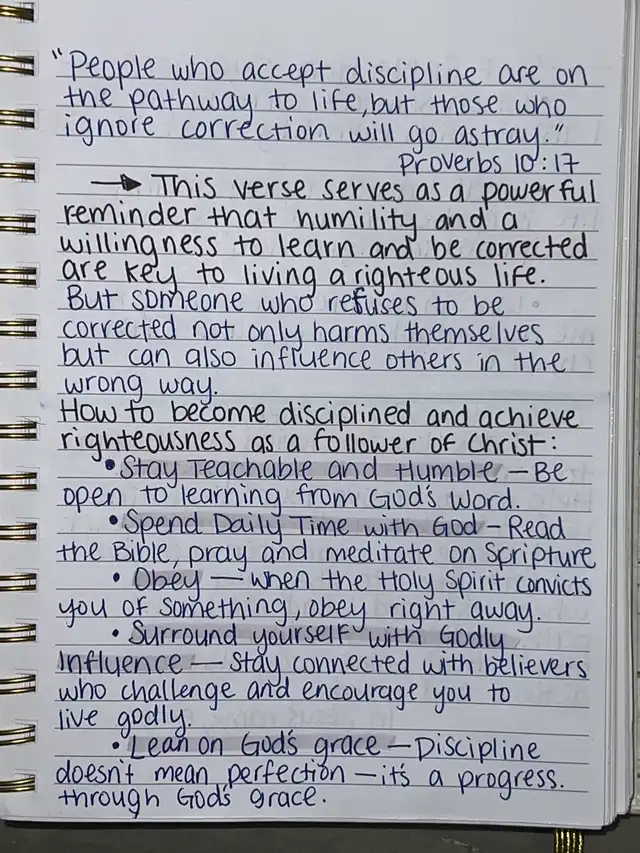 "People who accept discipline are on
the pathway to life, but those who
ignore correction will go astray."
Proverbs 10:17
→ This verse serves as a powerful
reminder that humility and a
willingness to learn and be corrected
are key to living a righteous life.
But someone who refuses to be
corrected not only harms themselves
but can also influence others in the
wrong way.
How to become disciplined and achieve
righteousness as a follower of Christ:
• Stay Teachable and Humble – Be
open to learning from God's word.
• Spend Daily Time with God – Read
the Bible, pray and meditate on Scripture
• Obey – when the Holy Spirit convicts
you of something, obey right away.
• Surround yourself with Godly
Influence – Stay connected with believers
who challenge and encourage you to
live godly.
• Lean on God's grace – Discipline
doesn't mean perfection – it's a progress.
through God's grace.